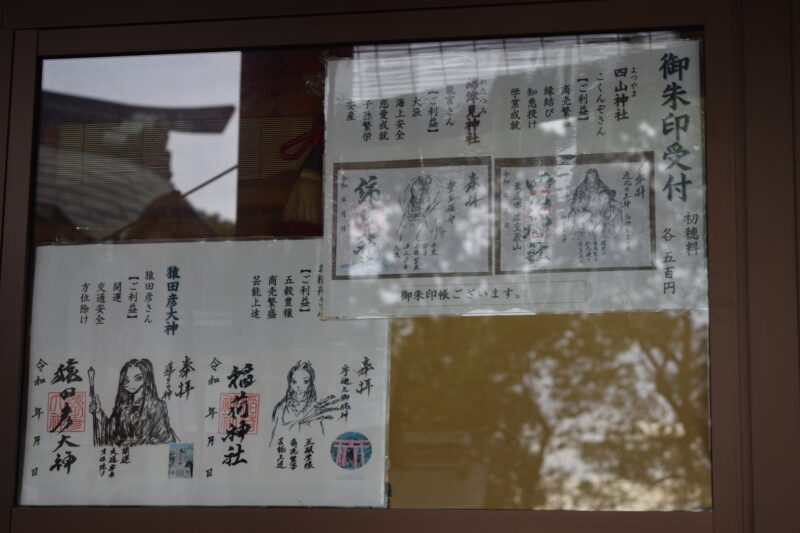 御朱印受付
初穂料
各 五百円
よつやま
四山神社
こくんぞさん
【ご利益】
商売繁盛
縁結び
知恵授け
学業成就
わたつみ
綿津見神社
龍宮さん
【ご利益】
大漁
海上安全
恋愛成就
子孫繁栄
安産
奉拝
令和 年 月 日
奉拝
令和 年 月 日
御朱印帳ございます。
【ご利益】
五穀豊穣
商売繁盛
芸能上達
猿田彦大神
猿田彦さん
【ご利益】
開運
交通安全
方位除け
奉拝
宇迦之御魂神
五穀豊穣
商売繁盛
芸能上達
稲荷神社
令和 年 月 日
奉拝
導きの神
開運
交通安全
方位除け
猿田彦大神
令和 年 月 日